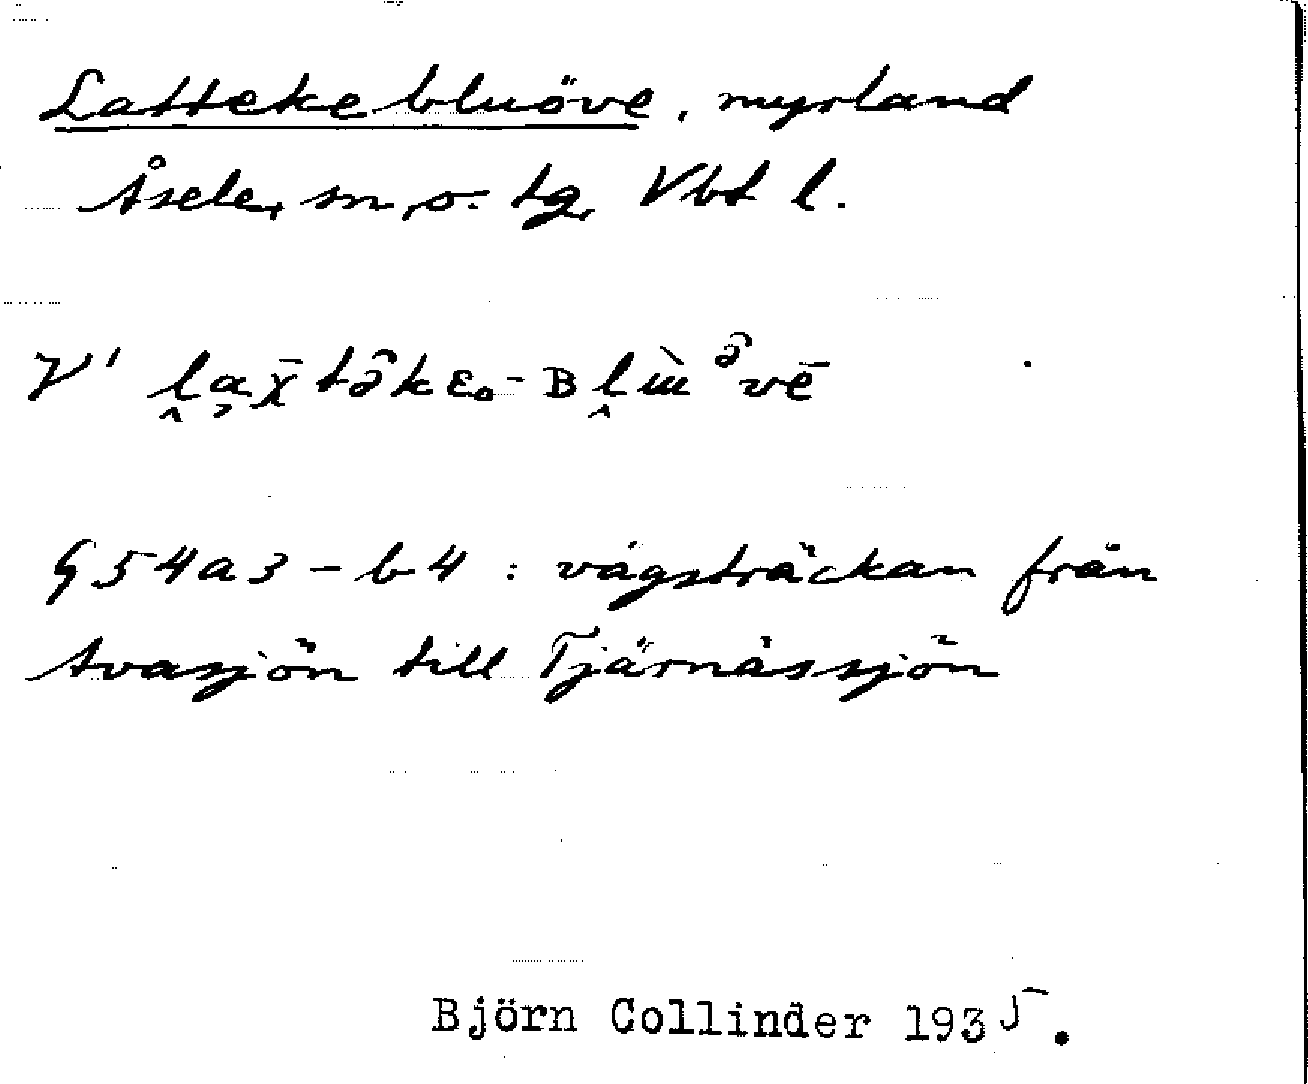 Lattekebluöve, myrland
Åsele, sn, o. tg, Vbt l.
V' ḽa̦χ̄tə̂kɛ₀-ʙḽɯ̀ᵊvē
G54a3-b4: vägsträckan från
Avasjön till Tjärnåssjön
Björn Collinder 1935.